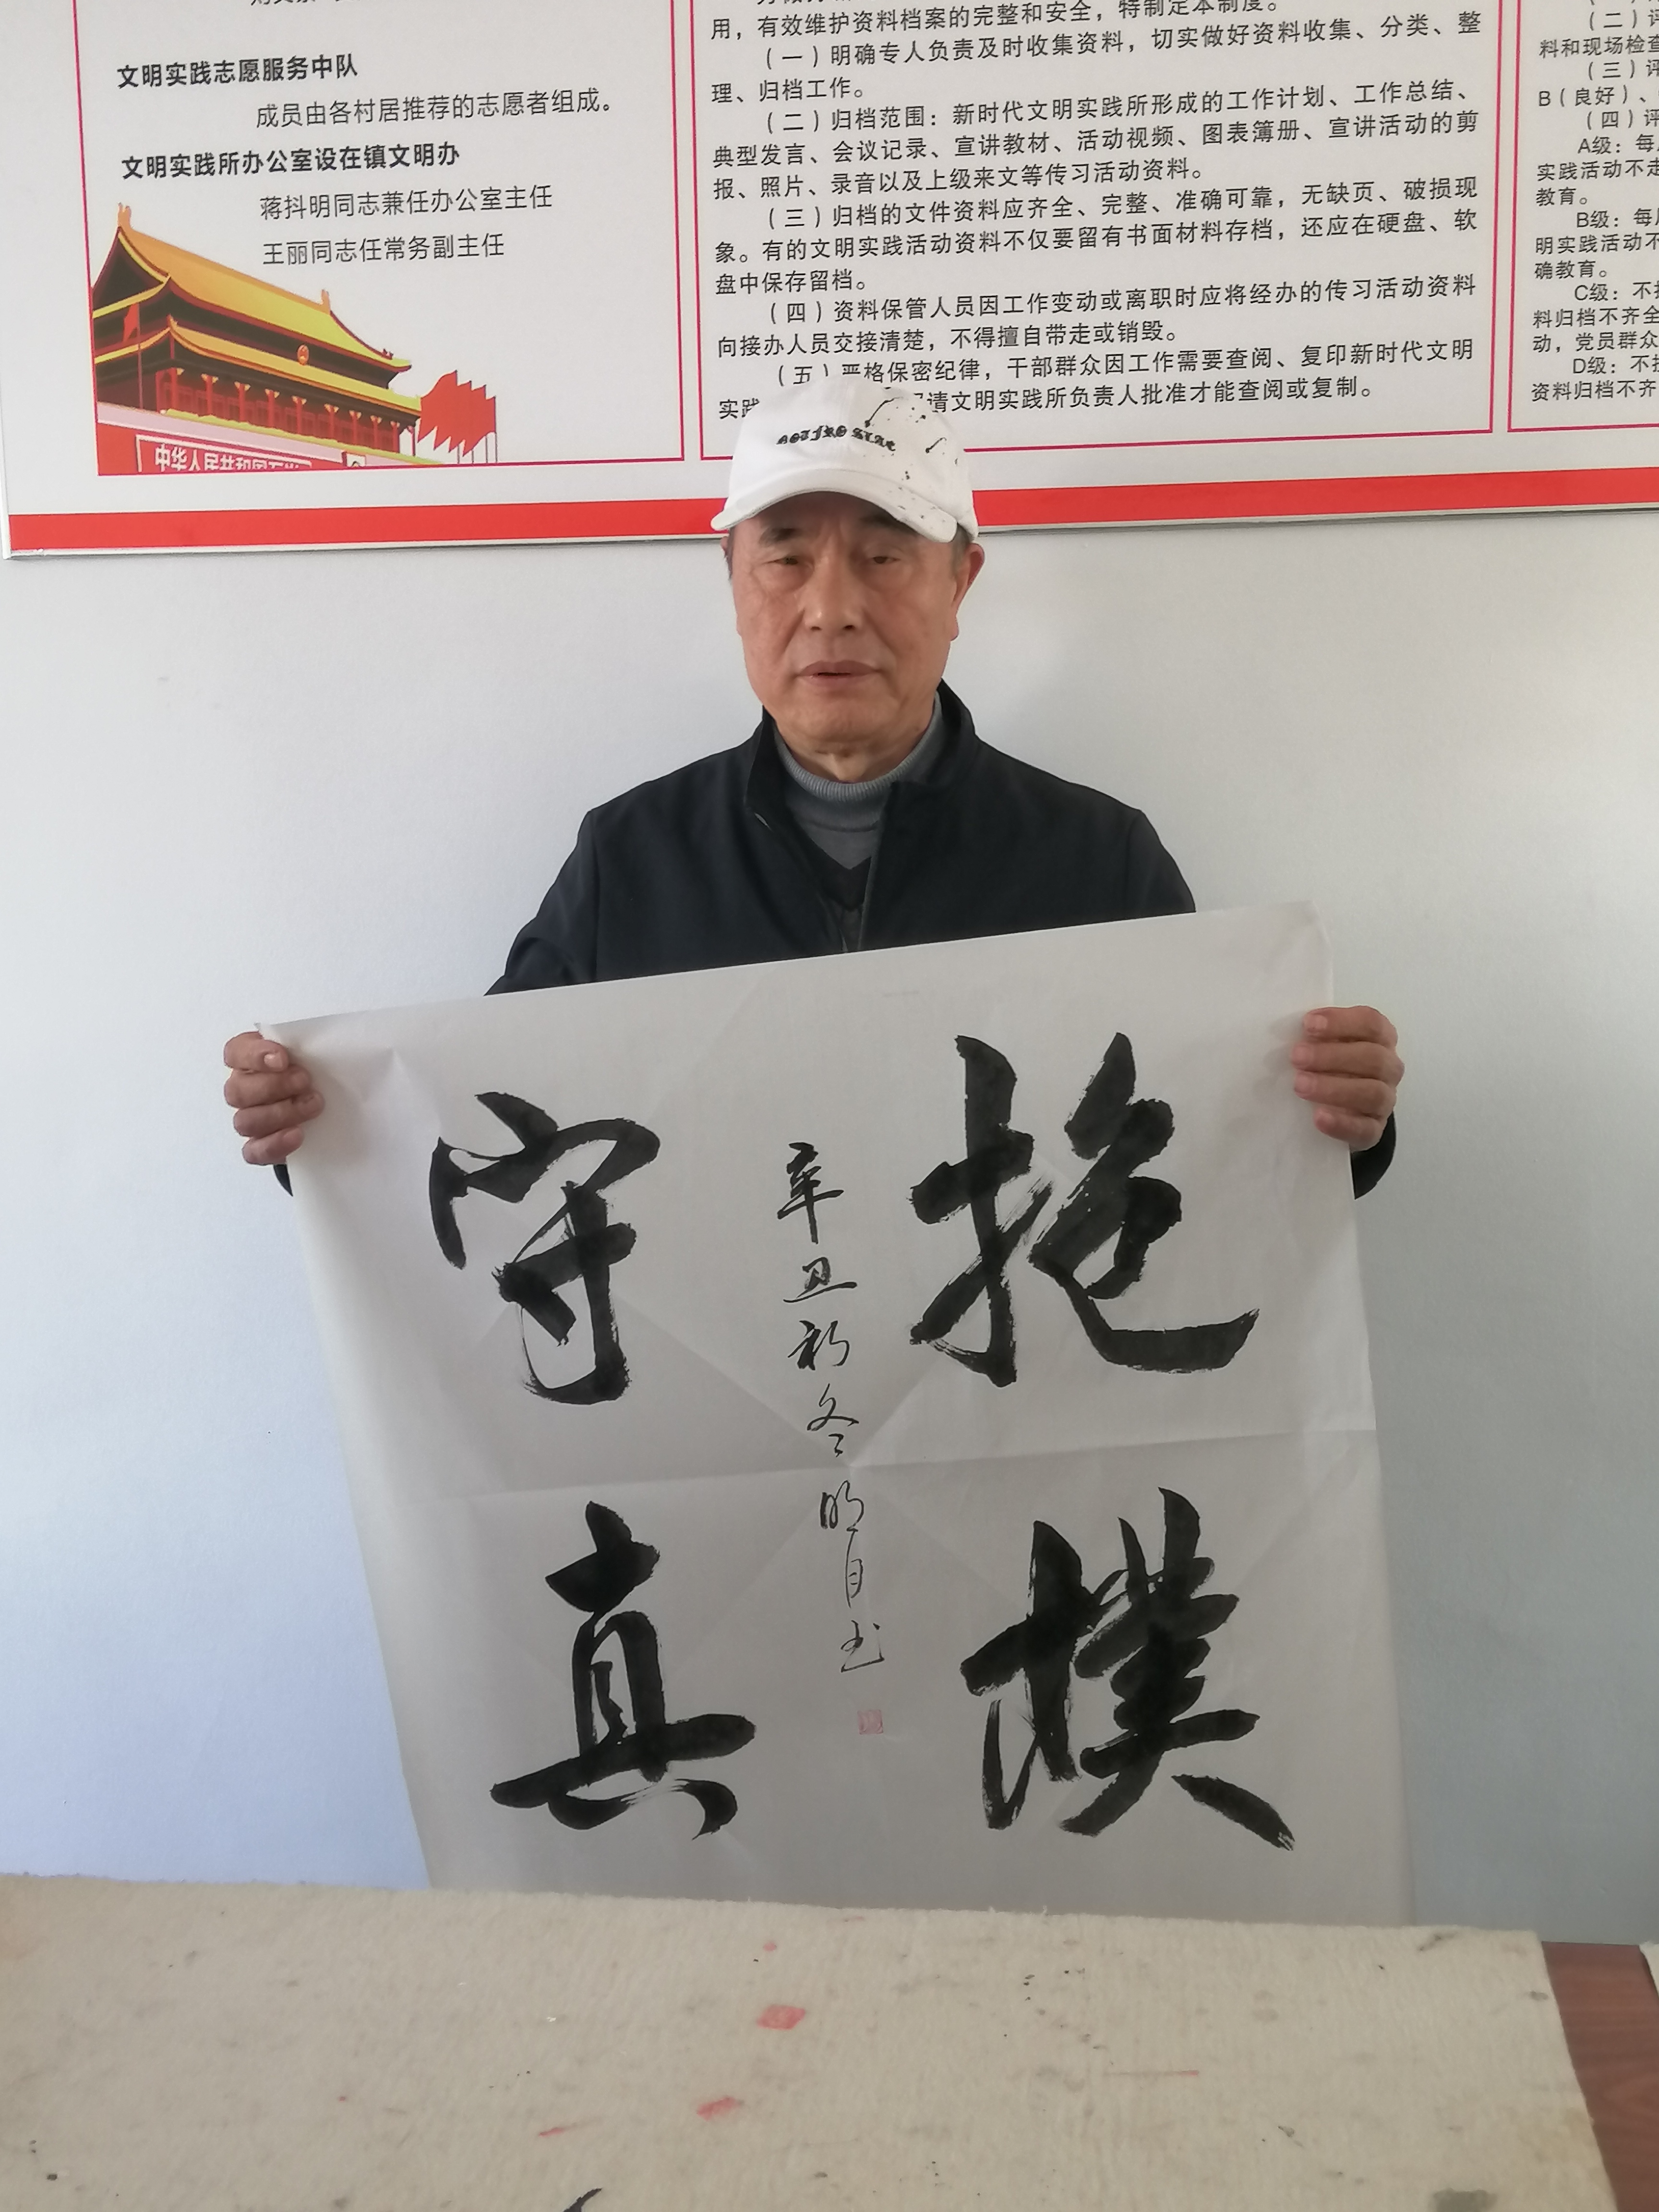 文明实践志愿服务中队
成员由各村居推荐的志愿者组成。
文明实践所办公室设在镇文明办
蒋抖明同志兼任办公室主任
王丽同志任常务副主任
中华人民共和国万岁
用，有效维护资料档案的完整和安全，特制定本制度。
（一）明确专人负责及时收集资料，切实做好资料收集、分类、整
理、归档工作。
（二）归档范围：新时代文明实践所形成的工作计划、工作总结、
典型发言、会议记录、宣讲教材、活动视频、图表簿册、宣讲活动的剪
报、照片、录音以及上级来文等传习活动资料。
（三）归档的文件资料应齐全、完整、准确可靠，无缺页、破损现
象。有的文明实践活动资料不仅要留有书面材料存档，还应在硬盘、软
盘中保存留档。
（四）资料保管人员因工作变动或离职时应将经办的传习活动资料
向接办人员交接清楚，不得擅自带走或销毁。
（五）严格保密纪律，干部群众因工作需要查阅、复印新时代文明
实践 请文明实践所负责人批准才能查阅或复制。
（二）评
料和现场检查
（三）评
B（良好）、
（四）评
A级：每
实践活动不走
教育。
B级：每
明实践活动不
确教育。
C级：不
料归档不齐全
动，党员群众
D级：不
资料归档不齐
抱朴
守真
辛丑初冬明月书